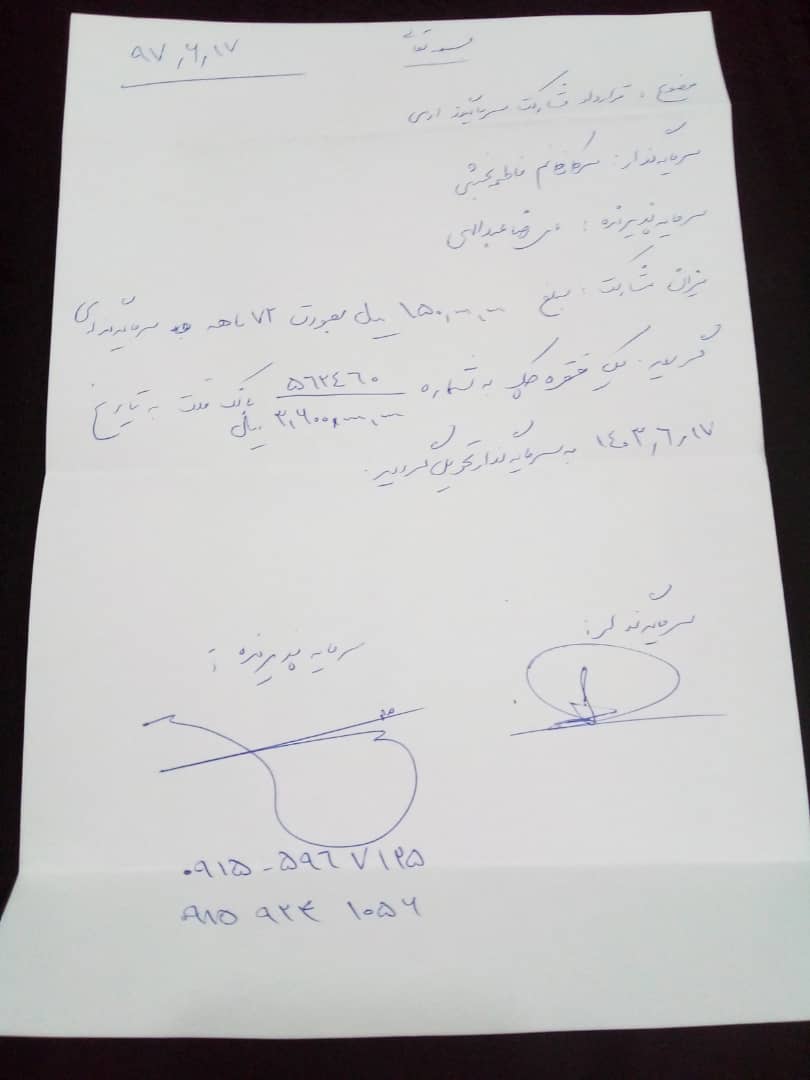 بسمه تعالی
۹۷,۶,۱۷
موضوع : قرارداد مشارکت سرمایه‌گذاری
سرمایه‌گذار : سرکار خانم فاطمه
سرمایه پذیرنده : علیرضا عبدالهی
میزان مشارکت : مبلغ ۱۵۰,۰۰۰,۰۰۰ ریال بصورت ۷۲ ماهه سرمایه‌گذاری
گردید. یک فقره چک به شماره ۵۶۲۴۶۰ بانک ملت به تاریخ
۳,۶۰۰,۰۰۰,۰۰۰ ریال
۱۴۰۳,۶,۱۷ به سرمایه‌گذار تحویل گردید.
سرمایه‌گذار :
سرمایه پذیرنده :
۰۹۱۵-۵۹۶۷۱۲۵
۹۱۵ ۹۲۴ ۱۰۵۶